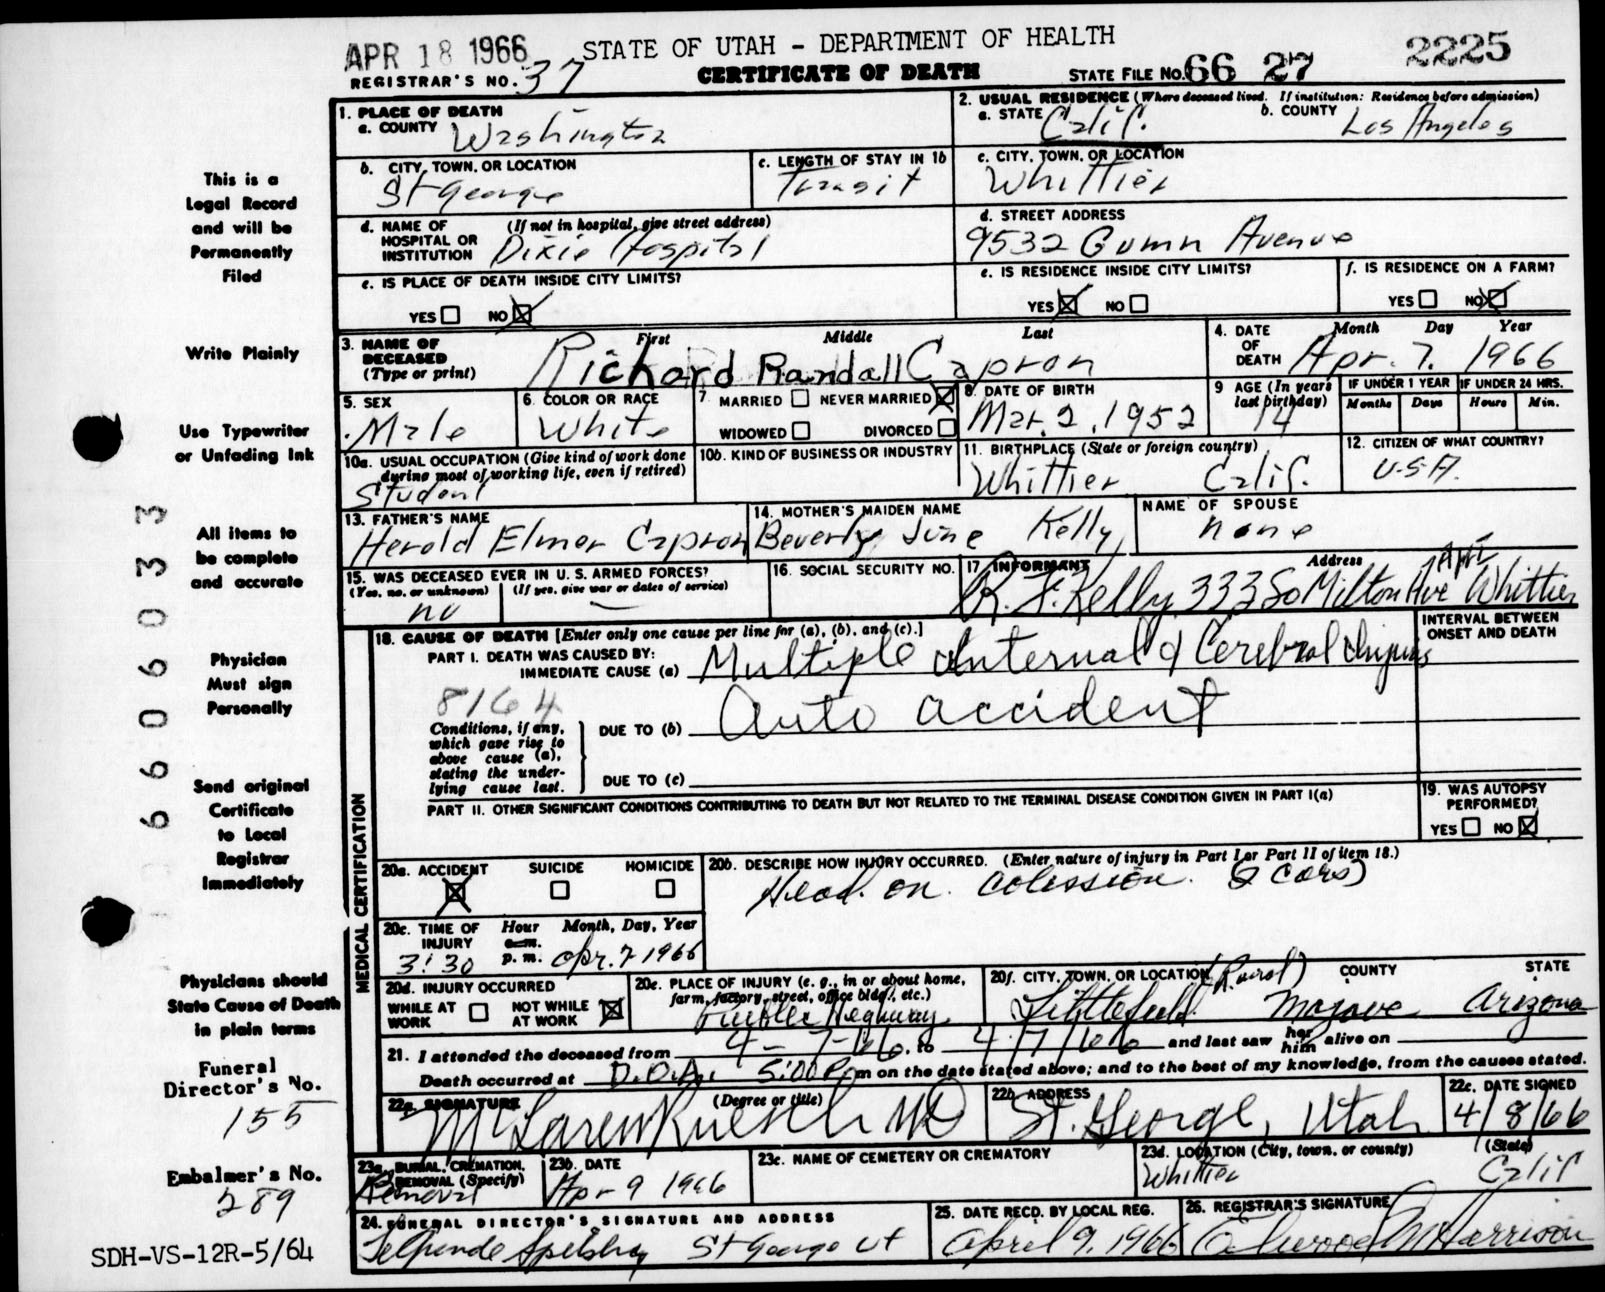 APR 18 1966 STATE OF UTAH - DEPARTMENT OF HEALTH 2225
REGISTRAR'S NO. 37 CERTIFICATE OF DEATH STATE FILE NO. 66 27
1. PLACE OF DEATH
a. COUNTY Washington
2. USUAL RESIDENCE (Where deceased lived. If institution: Residence before admission)
a. STATE Calif. b. COUNTY Los Angeles
b. CITY, TOWN, OR LOCATION St George
c. LENGTH OF STAY IN 1b Transit
c. CITY, TOWN, OR LOCATION Whittier
d. NAME OF HOSPITAL OR INSTITUTION (If not in hospital, give street address) Dixie Hospital
d. STREET ADDRESS 9532 Gumn Avenue
e. IS PLACE OF DEATH INSIDE CITY LIMITS?
YES NO X
e. IS RESIDENCE INSIDE CITY LIMITS?
YES X NO
f. IS RESIDENCE ON A FARM?
YES NO X
3. NAME OF DECEASED (Type or print) First Middle Last
Richard Randall Capron
4. DATE OF DEATH Month Day Year
Apr. 7. 1966
5. SEX Male
6. COLOR OR RACE White
7. MARRIED NEVER MARRIED X
WIDOWED DIVORCED
8. DATE OF BIRTH Mar. 2, 1952
9 AGE (In years last birthday) 14
IF UNDER 1 YEAR Months Days
IF UNDER 24 HRS. Hours Min.
10a. USUAL OCCUPATION (Give kind of work done during most of working life, even if retired) Student
10b. KIND OF BUSINESS OR INDUSTRY
11. BIRTHPLACE (State or foreign country) Whittier Calif.
12. CITIZEN OF WHAT COUNTRY? U.S.A.
13. FATHER'S NAME Herold Elmer Capron
14. MOTHER'S MAIDEN NAME Beverly June Kelly
NAME OF SPOUSE none
15. WAS DECEASED EVER IN U. S. ARMED FORCES?
(Yes, no, or unknown) (If yes, give war or dates of service)
no —
16. SOCIAL SECURITY NO.
17 INFORMANT Address
R. F. Kelly 333 So Milton Ave Whittier
MEDICAL CERTIFICATION
18. CAUSE OF DEATH [Enter only one cause per line for (a), (b), and (c).]
INTERVAL BETWEEN ONSET AND DEATH
PART I. DEATH WAS CAUSED BY:
IMMEDIATE CAUSE (a) Multiple Internal & Cerebral Injuries
8164
Conditions, if any, which gave rise to above cause (a), stating the underlying cause last.
DUE TO (b) Auto accident
DUE TO (c)
PART II. OTHER SIGNIFICANT CONDITIONS CONTRIBUTING TO DEATH BUT NOT RELATED TO THE TERMINAL DISEASE CONDITION GIVEN IN PART I(a)
19. WAS AUTOPSY PERFORMED?
YES NO X
20a. ACCIDENT SUICIDE HOMICIDE
X
20b. DESCRIBE HOW INJURY OCCURRED. (Enter nature of injury in Part I or Part II of item 18.)
Head on Colission (2 cars)
20c. TIME OF INJURY Hour a.m. p.m. Month, Day, Year
3:30 Apr. 7 1966
20d. INJURY OCCURRED
WHILE AT WORK NOT WHILE AT WORK X
20e. PLACE OF INJURY (e. g., in or about home, farm, factory, street, office bldg., etc.)
Public Highway
20f. CITY, TOWN, OR LOCATION COUNTY STATE
Littlefield (Rural) Mojave Arizona
21. I attended the deceased from 4-7-66, to 4/7/66 and last saw her him alive on
Death occurred at D.O.A. 5:00 P m on the date stated above; and to the best of my knowledge, from the causes stated.
22a. SIGNATURE (Degree or title)
McLaren Ruesch MD
22b. ADDRESS St. George, Utah
22c. DATE SIGNED 4/8/66
23a. BURIAL, CREMATION, REMOVAL (Specify) Removal
23b. DATE Apr 9 1966
23c. NAME OF CEMETERY OR CREMATORY
23d. LOCATION (City, town, or county) (State)
Whittier Calif
24. FUNERAL DIRECTOR'S SIGNATURE AND ADDRESS
St George Ut
25. DATE RECD. BY LOCAL REG.
April 9, 1966
26. REGISTRAR'S SIGNATURE
Elwood Harrison
This is a
Legal Record
and will be
Permanently
Filed
Write Plainly
Use Typewriter
or Unfading Ink
All items to
be complete
and accurate
Physician
Must sign
Personally
Send original
Certificate
to Local
Registrar
Immediately
Physicians should
State Cause of Death
in plain terms
Funeral
Director's No.
155
Embalmer's No.
289
SDH-VS-12R-5/64
6606033